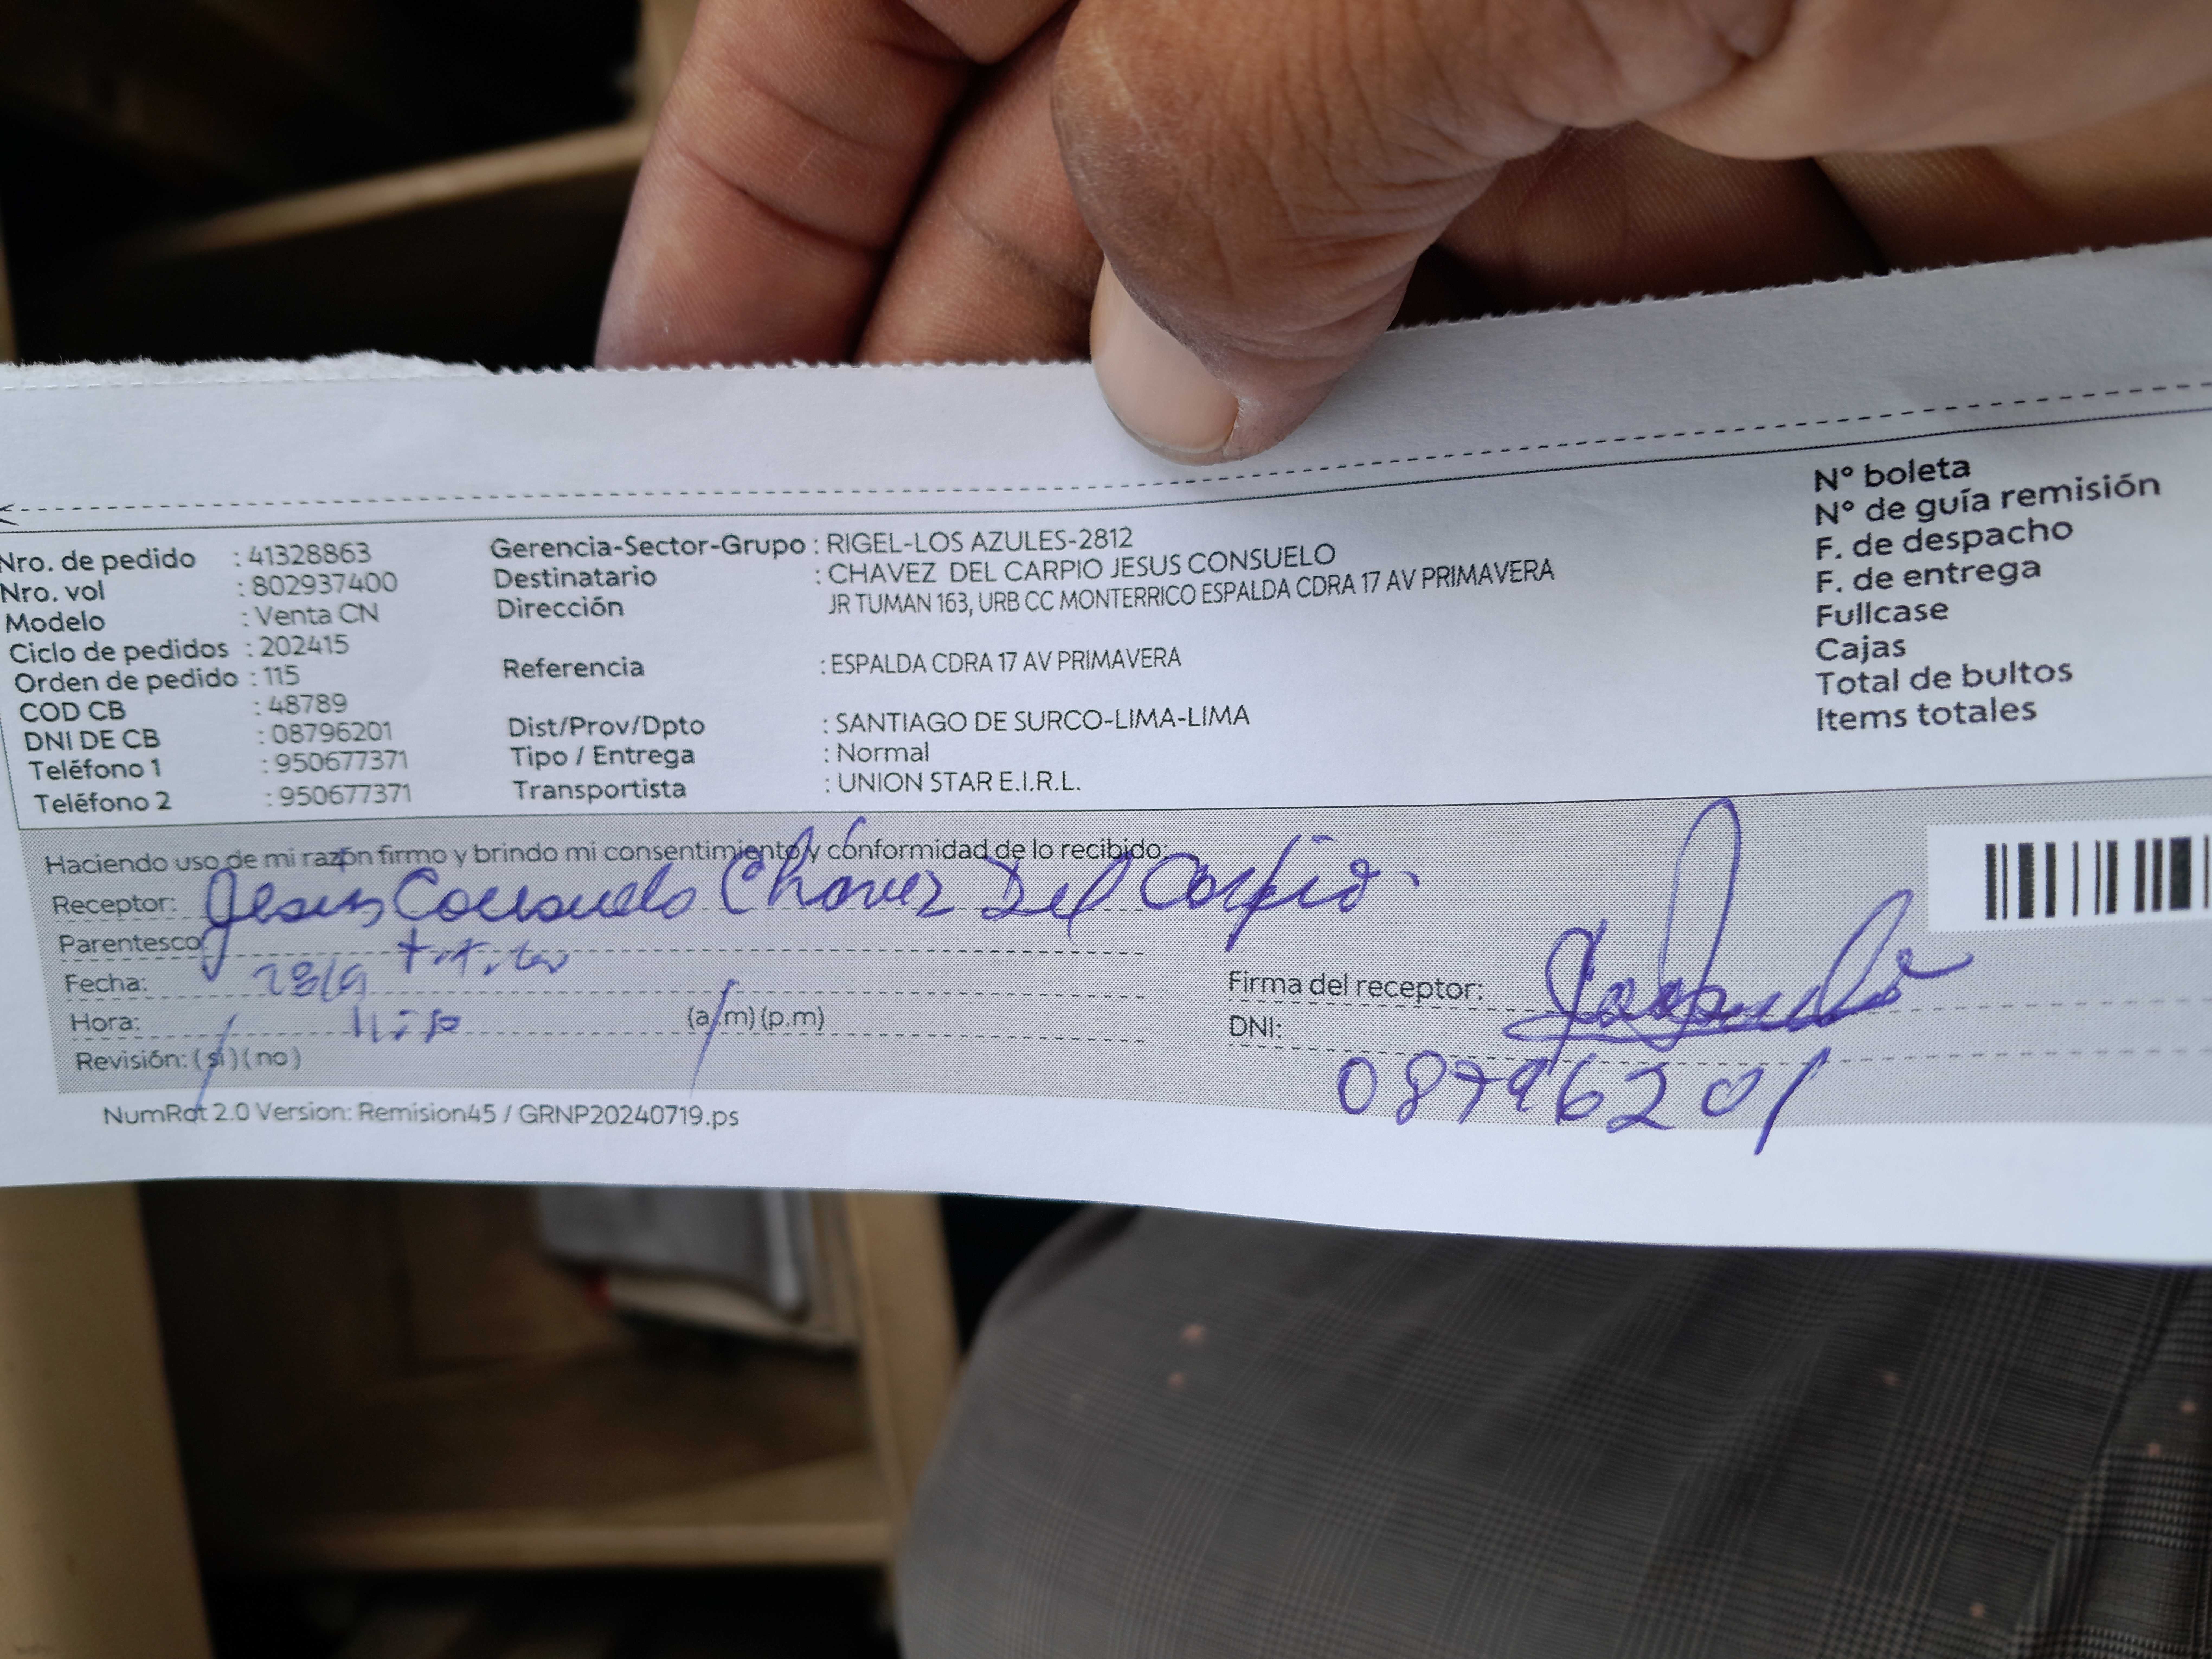 Nro. de pedido : 41328863
Nro. vol : 802937400
Modelo : Venta CN
Ciclo de pedidos : 202415
Orden de pedido : 115
COD CB : 48789
DNI DE CB : 08796201
Teléfono 1 : 950677371
Teléfono 2 : 950677371
Gerencia-Sector-Grupo : RIGEL-LOS AZULES-2812
Destinatario : CHAVEZ DEL CARPIO JESUS CONSUELO
Dirección JR TUMAN 163, URB CC MONTERRICO ESPALDA CDRA 17 AV PRIMAVERA
Referencia : ESPALDA CDRA 17 AV PRIMAVERA
Dist/Prov/Dpto : SANTIAGO DE SURCO-LIMA-LIMA
Tipo / Entrega : Normal
Transportista : UNION STAR E.I.R.L.
N° boleta
N° de guía remisión
F. de despacho
F. de entrega
Fullcase
Cajas
Total de bultos
Items totales
Haciendo uso de mi razón firmo y brindo mi consentimiento y conformidad de lo recibido:
Receptor: Jesus Consuelo Chavez Del Carpio.
Parentesco: titular
Fecha: 28/9
Hora: (a.m) (p.m)
Revisión: (si) (no)
Firma del receptor:
DNI: 08796201
NumRot 2.0 Version: Remision45 / GRNP20240719.ps